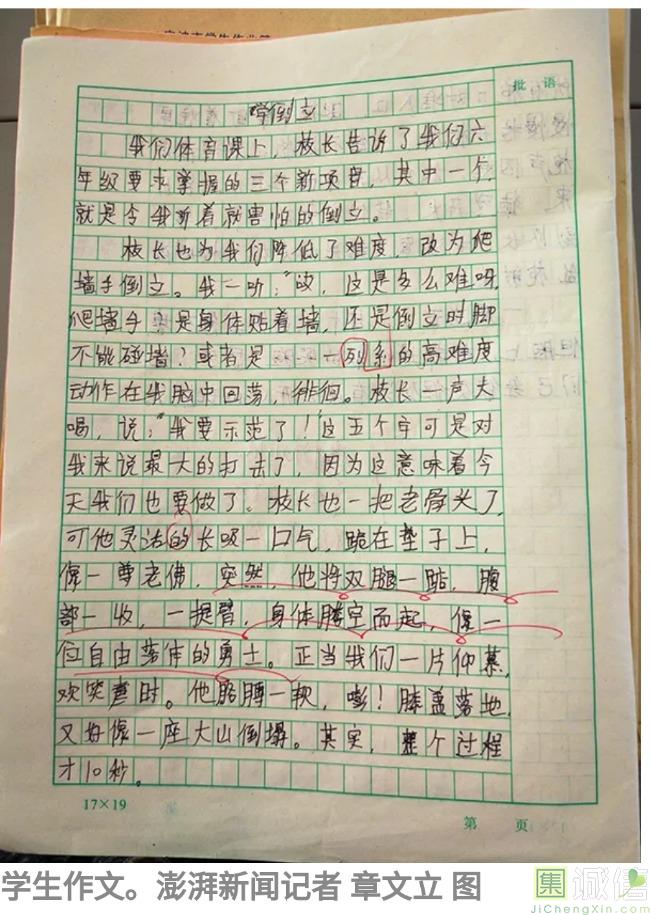 批 语
学倒立
我们体育课上，校长告诉了我们六
年级要求掌握的三个新项目，其中一个
就是令我听着就害怕的倒立。
校长也为我们降低了难度，改为爬
墙手倒立。我一听："哎，这是多么难呀
爬墙手？是身体贴着墙，还是倒立时脚
不能碰墙？或者是……一列系的高难度
动作在我脑中回荡，徘徊。校长一声大
喝，说："我要示范了！"这五个字可是对
我来说最大的打击了，因为这意味着今
天我们也要做了。校长也一把老骨头了，
可他灵活的长吸一口气，跪在垫子上，
像一尊老佛，突然，他将双腿一踮，腹
部一收，一提臂，身体腾空而起，像一
位自由落体的勇士。正当我们一片仰慕，
欢笑声时。他胳膊一软，嘭！膝盖落地，
又好像一座大山倒塌。其实，整个过程
才10秒。
17×19
第 页
学生作文。澎湃新闻记者 章文立 图
集诚信
JiChengXin.com